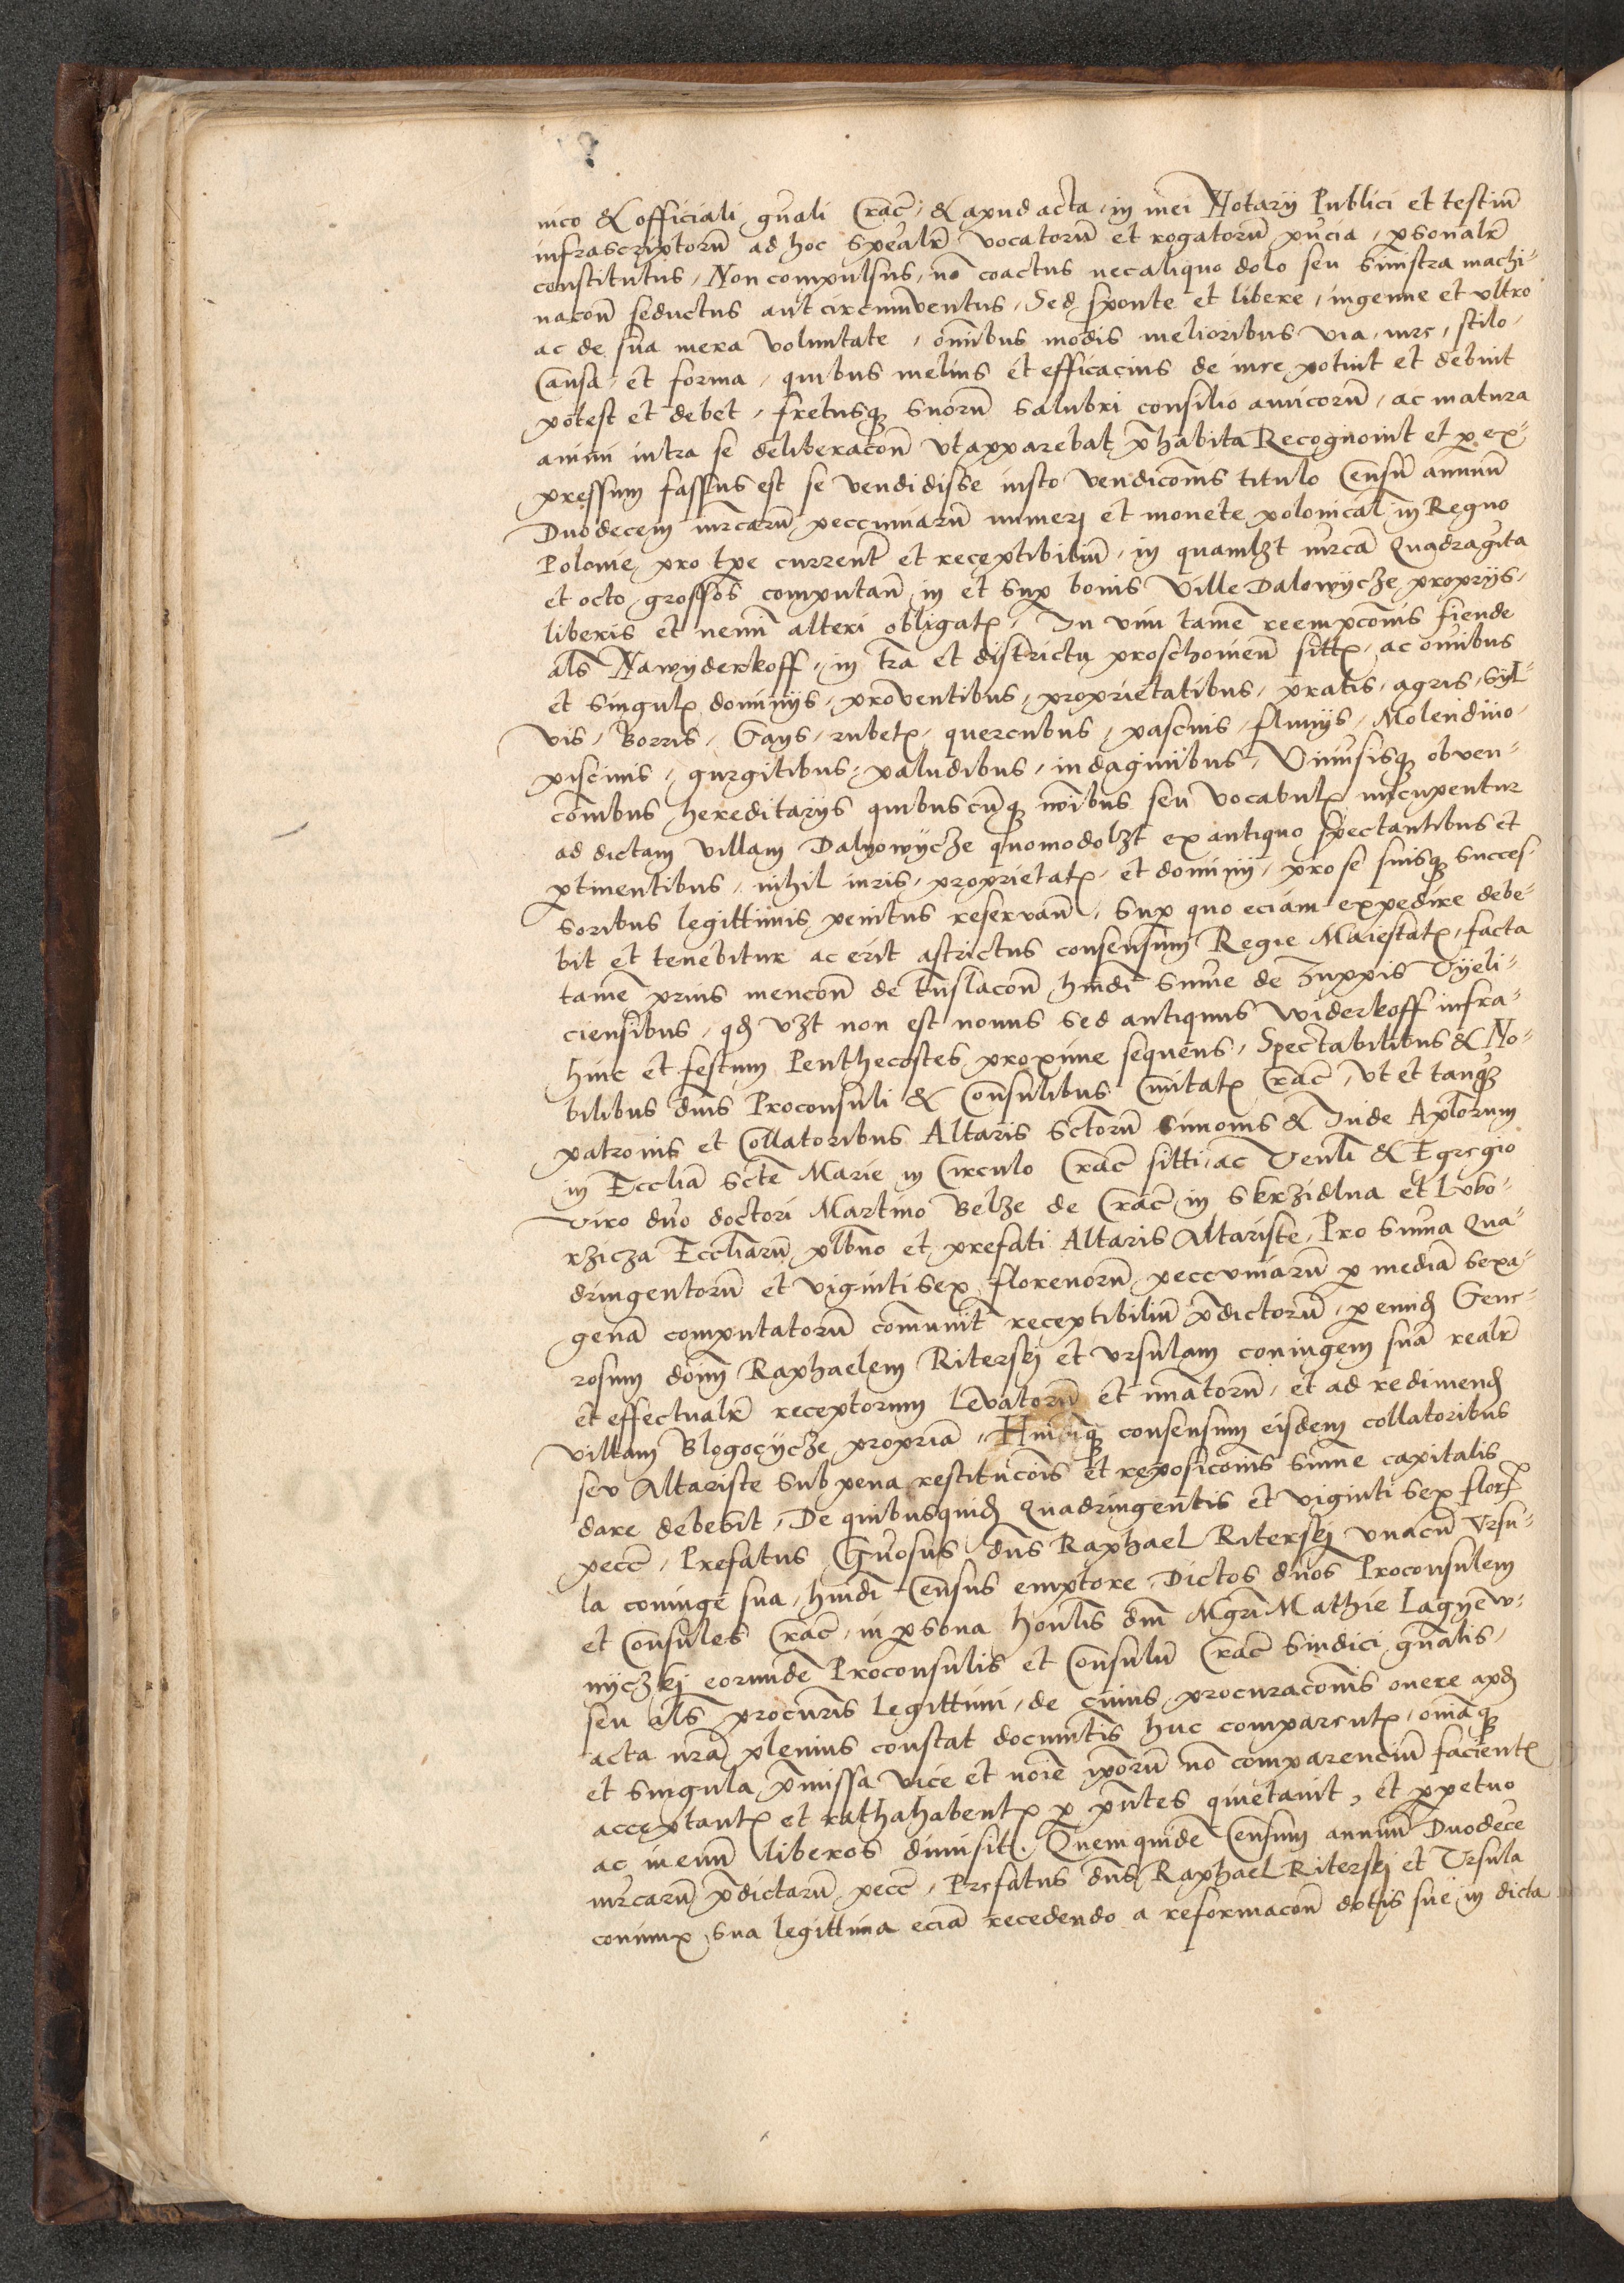 nico & officiali gn̄ali Crac̄ & apud acta in mei Notarij Publici et testiū
infrascriptorū ad hoc spēalr̄ vocatorū et rogatorū pn̄cia, p̱sonalr̄
constitutus, Non compulsus, nō coactus nec aliquo dolo seu sinistra machi-
nacōn seductus aut circumventus, Sed sponte et libere, ingenue et vltro
ac de sua mera voluntate, om̄ibus modis melioribus via, iure, stilo,
Causa, et forma, quibus melius et efficacius de iure potuit et debuit
potest et debet, fretusq̧ suorū salubri consilio amicorū, ac matura
animi intra se deliberacōn vt apparebat p̄habita Recognouit et p̱ ex-
pressum fassus est se vendidisse iusto vendicōnis titulo Censū annuū
Duodecem mr̄carū peccuniarū numerj et monete polonical̄ in Regno
Polonie pro tp̄e current̄ et receptibiliū, in quamlꝫt mr̄cā Quadragīta
et octo grossos computan̄ in et sup̱ bonis Ville Dalowycze proprijs,
liberis et nemī alteri obligatꝭ, In vim tamē reempcōnis fiende
al̄s Nawyderkoff, in tr̄a et districtu proschouien̄ sittꝭ, ac om̄ibus
et singulꝭ dominijs, proventibus, proprietatibus, pratis, agris, syl-
vis, Borris, Gays, rubetꝭ, quercubus, pascuis, fluuijs, Molendino,
piscinis, gurgitibus, paludibus, indaginibus, Vniuersisq̧ obven-
cōnibus hereditarijs quibuscūq̧ noībus seu vocabulꝭ nūcupentur
ad dictam villam Dalyowycze quomodolꝫt ex antiquo spectantibus et
p̱tinentibus, nihil iuris, proprietatꝭ, et dominij, pro se suisq̧ succes-
soribus legittimis penitus reservan̄, Sup̱ quo eciam expedire debe-
bit et tenebitur ac erit astrictus consensum Regie Maiestatꝭ, facta
tamē prius mencōn de tr̄nslacōn hmōi sum̄e de Zuppis Vyeli-
ciensibus, qđ vꝫt non est nouus sed antiquus widerkoff infra
hinc et festum Penthecostes proxime sequens, Spectabilibus & No-
bilibus dn̄is Proconsuli & Consulibus Ciuitatꝭ Crac̄, Vt et tanq̄ꝫ
patronis et Collatoribus Altaris Sctorū Simonis & Jude Apl̄orum
in Eccl̄ia Scte Marie in Circulo Crac̄ sitti, ac Ven̄li & Egregio
viro dn̄o doctori Martino Belze de Crac̄ in Skrzidlna et Lubo-
rzicza Eccl̄iarū pl̄bno et prefati Altaris Altariste, Pro sum̄a Qua-
dringentorū et viginti sex florenorū peccuniarū p̱ mediā sexa-
genā computatorū comunit̄ receptibiliū p̄dictorū, p̱ eunđ Gene-
rosum dōim Raphaelem Riterskj et Vrsulam coniugem suā realr̄
et effectualr̄ receptorum levatorū et nūatorū, et ad redimenđ
villam Blogocycze propriā, Hmōiq̧ consensum eisdem collatoribus
seu Altariste sub pena restitucōis et reposicōnis sum̄e capitalis
dare debebit, De quibusquiđ Quadringentis et viginti sex florꝭ
pecc̄, Prefatus Gn̄osus dn̄s Raphael Riterskj vnacū Vrsu-
la coniuge sua, hmōi Census emptore, Dictos dn̄os Proconsulem
et Consules Crac̄, in p̱sona hon̄lis dn̄i Mgr̄i Mathie Lagyew-
nyczkj eorundē Proconsulis et Consulū Crac̄ Sindici gn̄alis,
seu al̄s procur̄is legittimi, de cuius procuracōnis onere apđ
acta nr̄a plenius constat documētis huc comparentꝭ, omīaq̧
et singula p̄missa vice et noīe ip̄orū nō comparenciū facientꝭ
acceptantꝭ et rathahabentꝭ p̱ pn̄tes quietauit, et p̱petuo
ac in euū liberos dimisit. Quemquidē Censum annuū Duodecē
mr̄carū p̄dictarū pecc̄, Prefatus dn̄s Raphael Riterskj et Vrsula
coniunx sua legittima eciā recedendo a reformacōn dotis sue in dicta